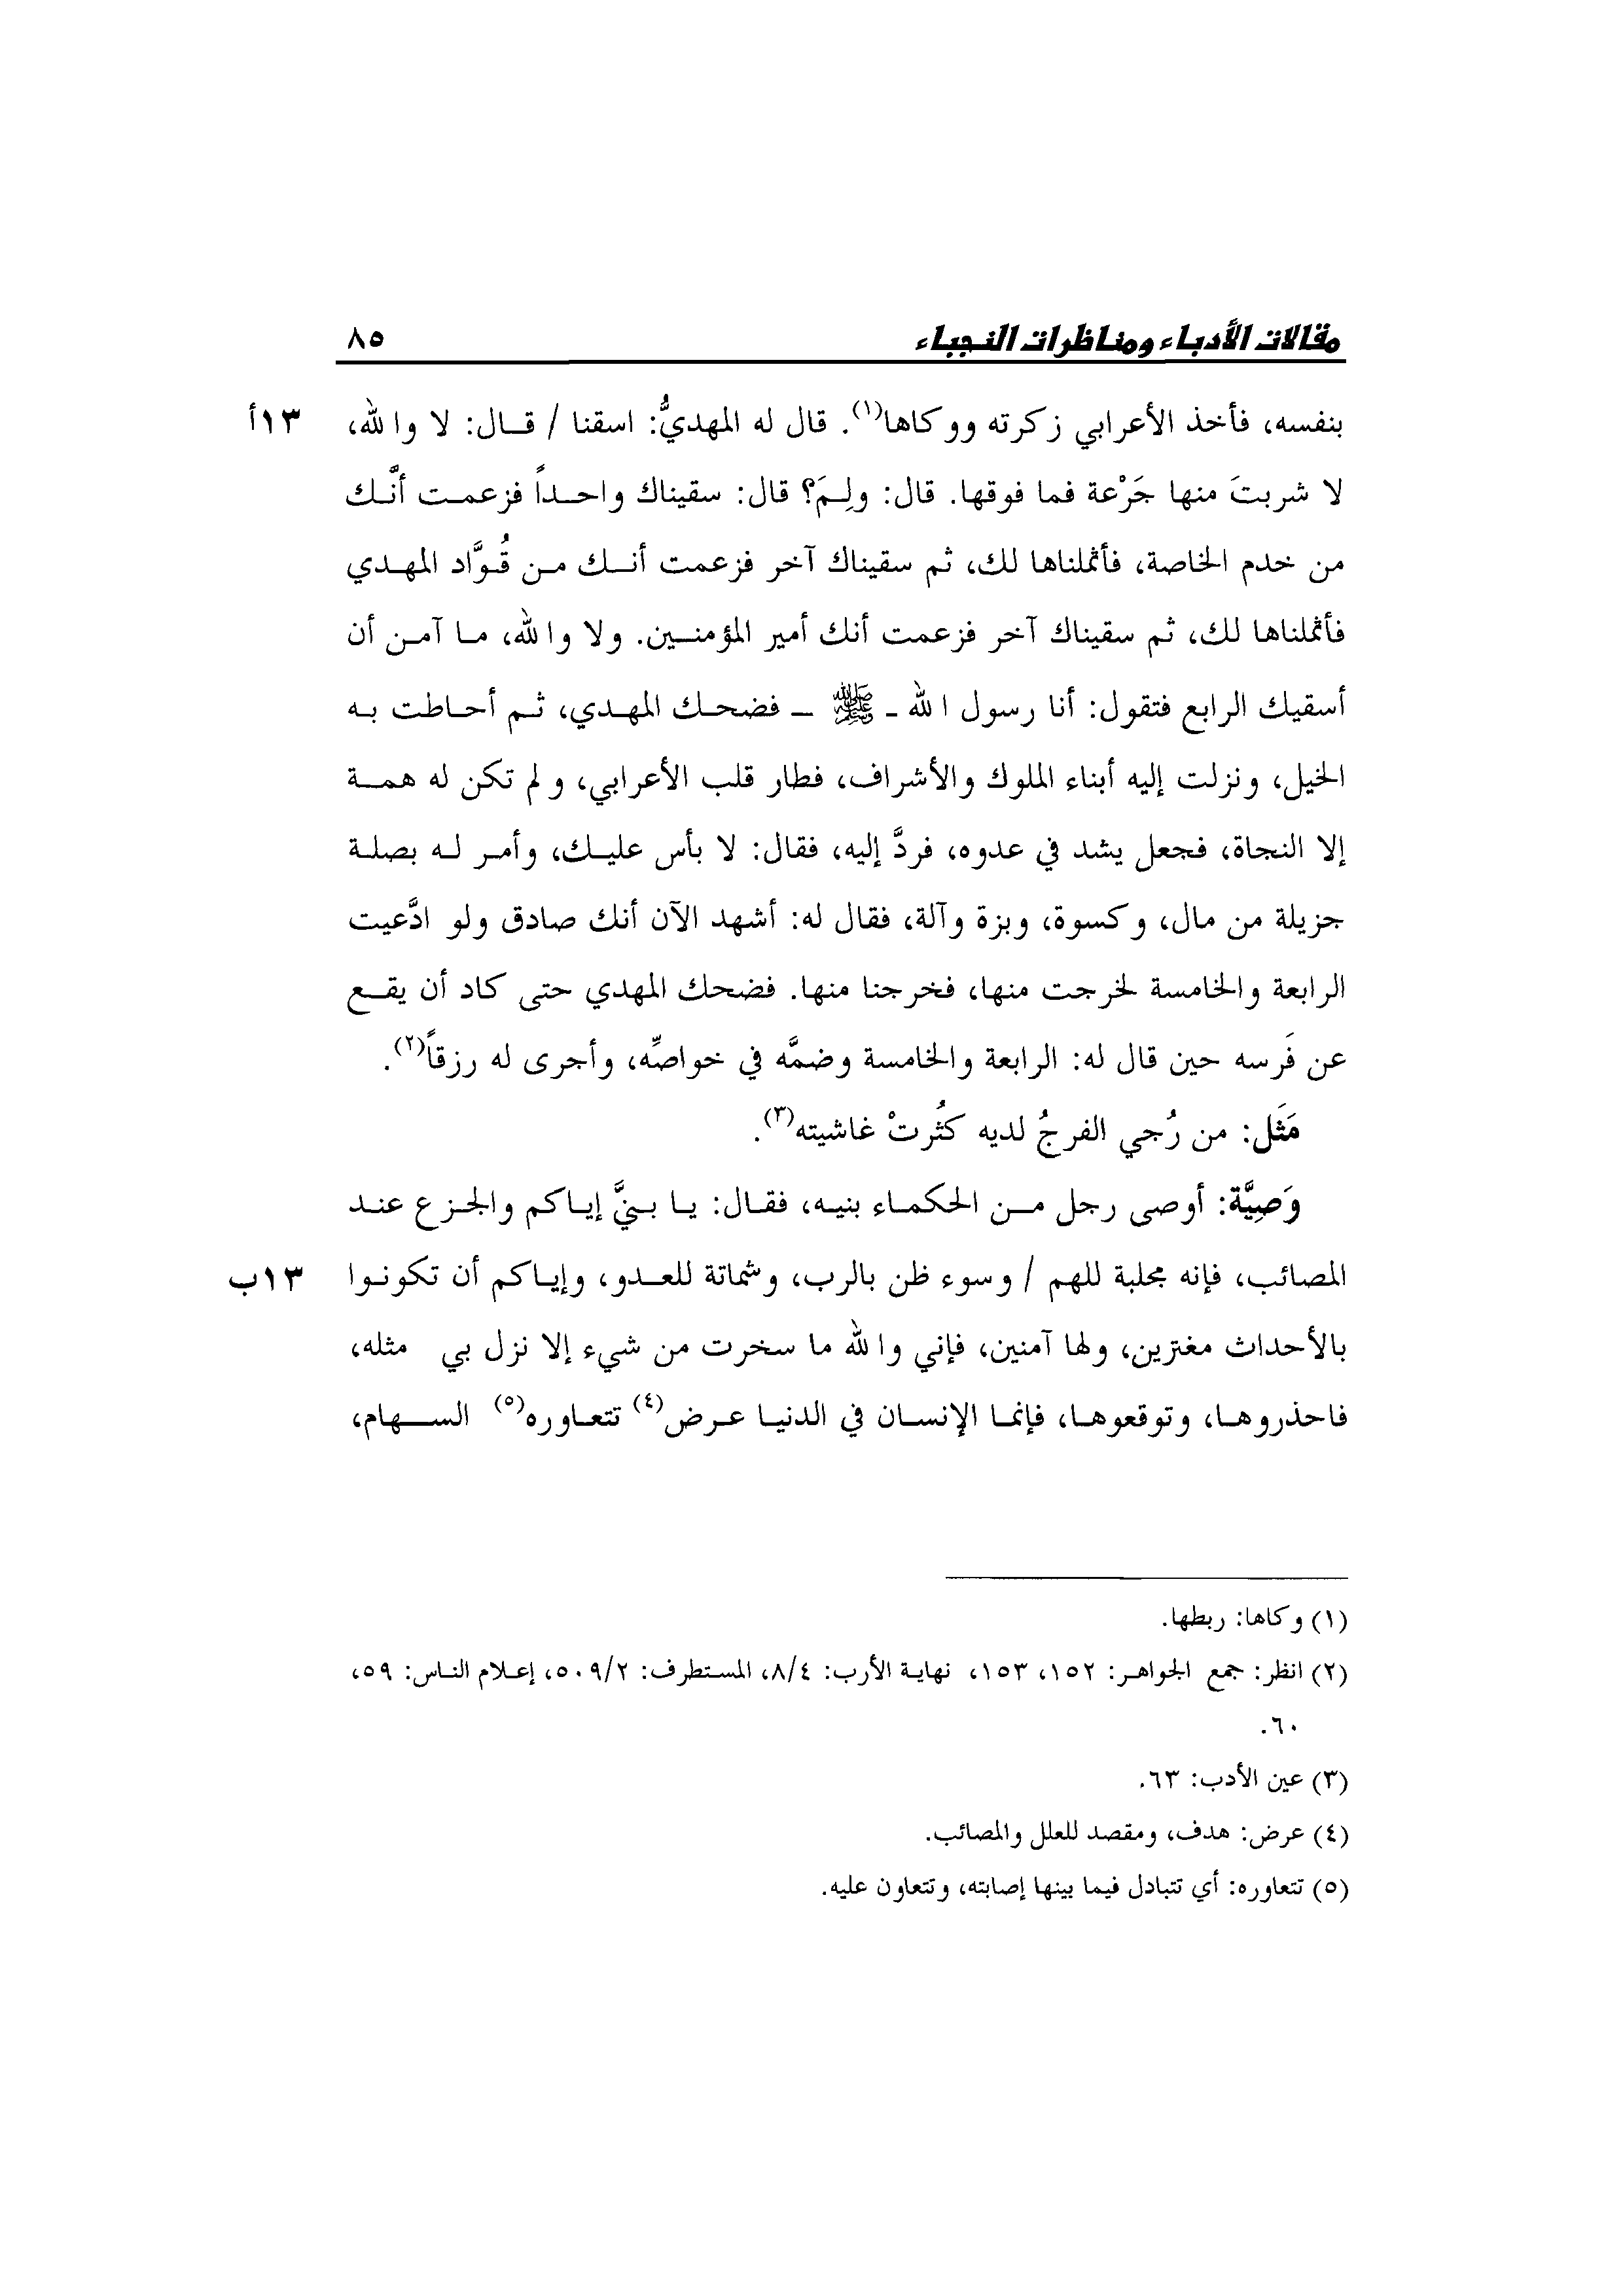 مقالات الأدباء ومناظرات النجباء ٨٥
بنفسه، فأخذ الأعرابي زكرته ووكاها(١). قال له المهديُّ: اسقنا / قال: لا والله، ١٣أ
لا شربتَ منها جَرْعة فما فوقها. قال: ولِمَ؟ قال: سقيناك واحداً فزعمت أنَّك
من خدم الخاصة، فأثملناها لك، ثم سقيناك آخر فزعمت أنك من قُوَّاد المهدي
فأثملناها لك، ثم سقيناك آخر فزعمت أنك أمير المؤمنين. ولا والله، ما آمن أن
أسقيك الرابع فتقول: أنا رسول الله ـ ﷺ ـ فضحك المهدي، ثم أحاطت به
الخيل، ونزلت إليه أبناء الملوك والأشراف، فطار قلب الأعرابي، ولم تكن له همة
إلا النجاة، فجعل يشد في عدوه، فردَّ إليه، فقال: لا بأس عليك، وأمر له بصلة
جزيلة من مال، وكسوة، وبزة وآلة، فقال له: أشهد الآن أنك صادق ولو ادَّعيت
الرابعة والخامسة لخرجت منها، فخرجنا منها. فضحك المهدي حتى كاد أن يقع
عن فَرسه حين قال له: الرابعة والخامسة وضمَّه في خواصِّه، وأجرى له رزقاً(٢).
مَثَل: من رُجي الفرجُ لديه كثُرتْ غاشيته(٣).
وَصِيَّة: أوصى رجل من الحكماء بنيه، فقال: يا بنيَّ إياكم والجزع عند
المصائب، فإنه مجلبة للهم / وسوء ظن بالرب، وشماتة للعدو، وإياكم أن تكونوا ١٣ب
بالأحداث مغترين، ولها آمنين، فإني والله ما سخرت من شيء إلا نزل بي مثله،
فاحذروها، وتوقعوها، فإنما الإنسان في الدنيا عرض(٤) تتعاوره(٥) السهام،
(١) وكاها: ربطها.
(٢) انظر: جمع الجواهر: ١٥٢، ١٥٣، نهاية الأرب: ٨/٤، المستطرف: ٥٠٩/٢، إعلام الناس: ٥٩،
٦٠.
(٣) عين الأدب: ٦٣.
(٤) عرض: هدف، ومقصد للعلل والمصائب.
(٥) تتعاوره: أي تتبادل فيما بينها إصابته، وتتعاون عليه.